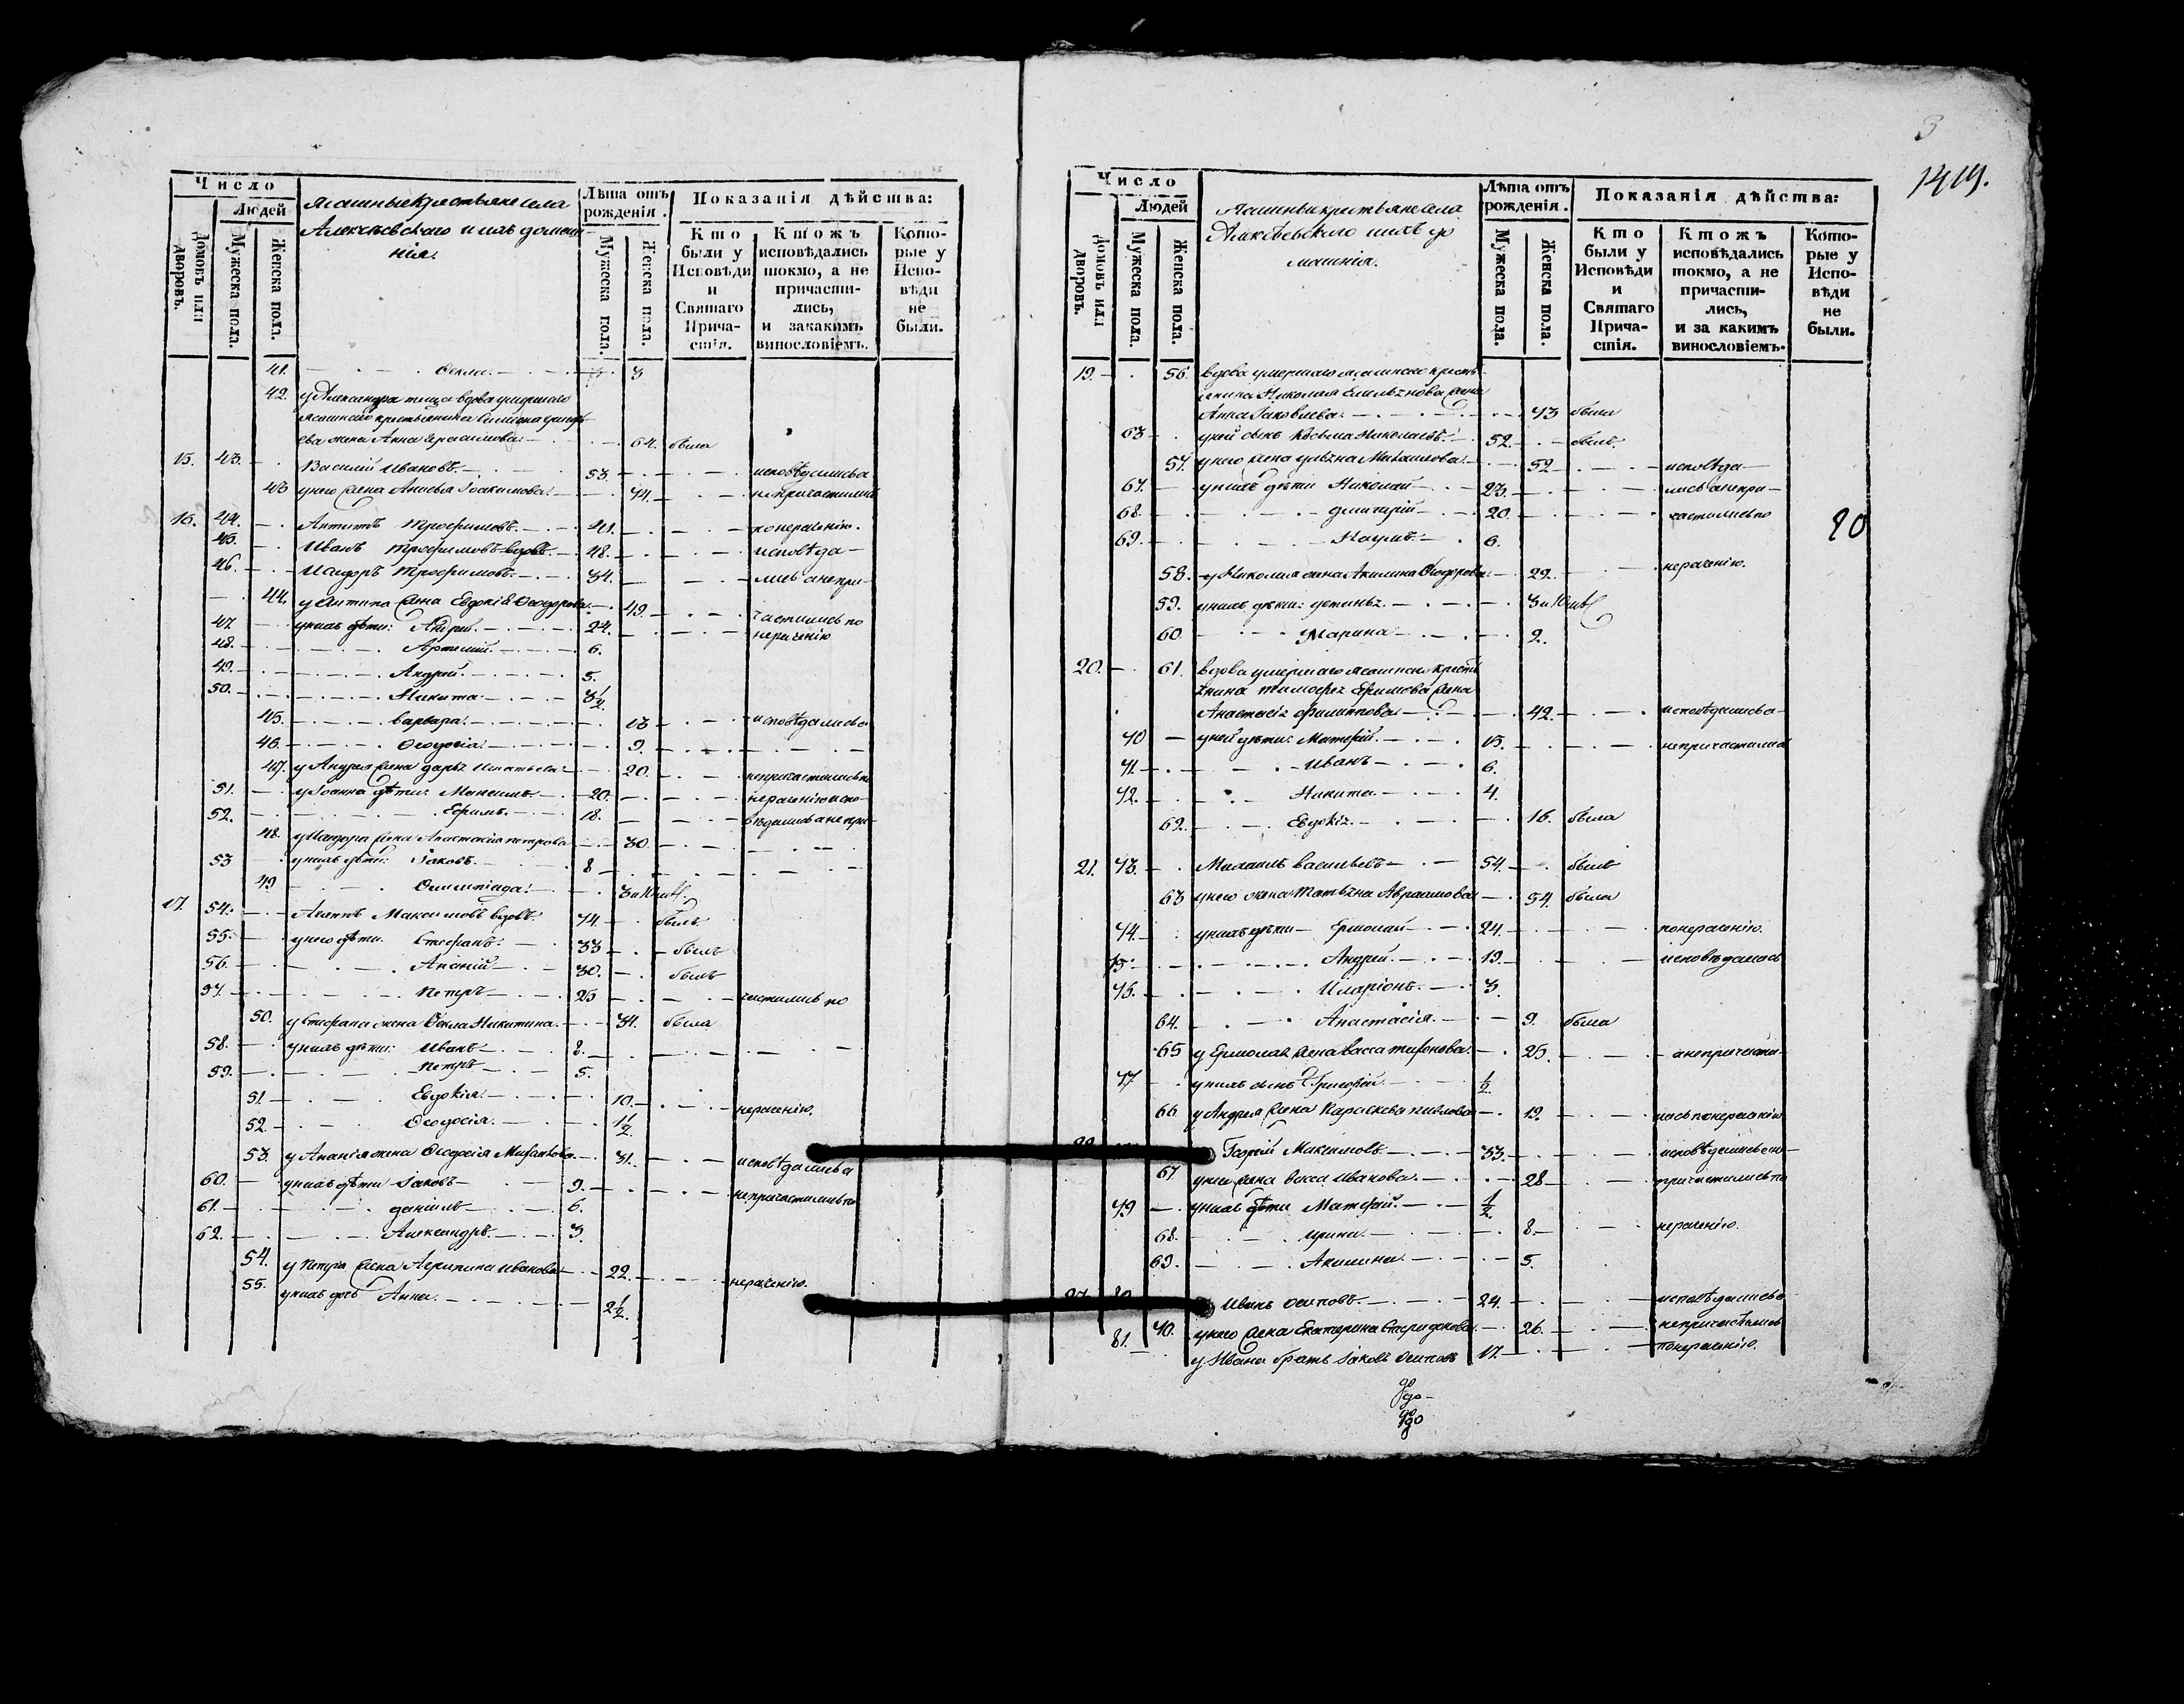 Число
Людей
Домовъ или дворовъ.
Мужеска пола.
Женска пола.
Ясашные крестьяне села
Алексѣевскаго и ихъ домаш
нія.
Лѣта отъ рожденія.
Мужеска пола.
Женска пола.
Показанія дѣйства:
Кто были у Исповѣди и Святаго Прича-стія.
Ктожъ исповѣдались токмо, а не причасти-лись, и закакимъ винословіемъ.
Кото-рые у Испо-вѣди не были.
41. Ѳекла. 3
42. у Александра теща вдова умершаго
ясашнаго крестьянина
ева жена Анна Герасимова. 64. была
15. 43. Василій Ивановъ. 53. исповѣдались а
43 у него жена Анисья Іоакимова. 44. не причастились
16. 44. Антипъ Трофимовъ. 41. по нераченію.
45. Иванъ Трофимовъ вдовъ. 48. исповѣда-
46. Исидоръ Трофимовъ. 34. лись а не при-
44. у Антипа жена Евдокія Ѳеодорова 49. частились по
47. у нихъ дѣти: Андрей. 24. нераченію
48. Артемій. 6.
49. Андрей. 5.
50. Никита. 3½
45. Варвара. 13 исповѣдались а
46. Ѳеодосія. 9.
47. у Андрея жена Дарья Игнатьева 20. не причастились по
51. у Іоанна дѣти: Максимъ. 20. нераченію испо-
52. Ефимъ. 18. вѣдались а не при-
48. у Исидора жена Анастасія Петрова 30.
53 у нихъ дѣти: Іаковъ. 8
49 Олимпіада. 3 и 10 мѣс.
17. 54. Агапъ Максимовъ вдовъ. 74. былъ
55. у него дѣти: Стефанъ. 33 былъ
56. Ананій 30. былъ
57. Петръ 25 частились по
50. у Стефана жена Ѳекла Никитина. 34. была
58. у нихъ дѣти: Иванъ 8.
59. Петръ 5.
51. Евдокія. 10. нераченію.
52. Ѳеодосія. 1½
53. у Ананія жена Ѳеодосія Михайлова 31. исповѣдались а
60. у нихъ дѣти Іаковъ 9. не причастились по
61. Даніилъ 6.
62. Александръ. 3.
54. у Петра жена Агрипина Иванова 22. нераченію.
55. у нихъ дочь Анна. 2½
3
1419.
Число
Людей
Домовъ или дворовъ.
Мужеска пола.
Женска пола.
Ясашныя крестьяне села
Алексѣевскаго и ихъ до
машнія.
Лѣта отъ рожденія.
Мужеска пола.
Женска пола.
Показанія дѣйства:
Кто были у Исповѣди и Святаго Прича-стія.
Ктожъ исповѣдались токмо, а не причасти-лись, и за какимъ винословіемъ.
Кото-рые у Испо-вѣди не были.
19. 56. вдова умершаго ясашнаго кресть
янина Николая Емельянова жена
Анна Іаковлева. 73 была
63 у ней сынъ Косьма Николаевъ. 52. былъ.
57. у него жена Ульяна Михаилова. 52 исповѣда
67. у нихъ дѣти Николай 23. лись а не при-
68. Димитрій 20. частились по
20
69. Наумъ. 6.
58. у Николая жена Акилина Ѳеодорова 22. нераченію.
59. у нихъ дѣти: Устинья. 3 и 10 мѣс
60. Марина 2.
20. 61. вдова умершаго ясашнаго кресть
янина Тимофея Ефимова жена
Анастасія Филиппова 42. исповѣдались а
70 у ней дѣти: Матфей. 15. не причастились
71. Иванъ 6.
72. Никита. 4.
62. Евдокія. 16. была
21. 73. Михаилъ Васильевъ 54. былъ
63 у него жена Татьяна Авраамова 54. была
74. у нихъ дѣти Ермолай 24. по нераченію.
75. Андрей. 19. исповѣдались
76. Иларіонъ. 3.
64. Анастасія. 9. была
65 у Ермолая жена Васса Тихонова. 25. а не причасти-
77. у нихъ сынъ Григорій. ½
66 у Андрея жена Параскева Павлова 19. лись по нераченію
Георгій Максимовъ. 33. исповѣдались а не
67 у него жена Васса Иванова. 28 причастились по
79 у нихъ дѣти Матфей. ½
68. Ирина. 8. нераченію.
69. Акилина. 5.
Иванъ Осиповъ. 24. исповѣдались а
70. у него жена Екатерина Спиридонова. 26. не причастились
81. у Ивана братъ Іаковъ Осиповъ 17. по нераченію.